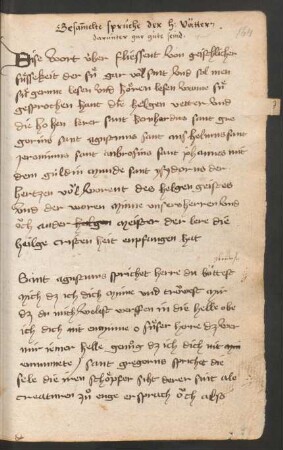 Gesamelte sprüche der H. Vätter,
darunter gar gute seind.
Dise wort über fliessent von geischlicher
süssekeit der sú gar vol sint und sol men
sú gerne lesen und hören lesen wanne sú
gesprochen hant die helgen vetter und
die hohen lerer sant bernhardus sant gre
gorius sant agustinus sant anshelmus sant
jeronimus sant ambrosius sant johannes mit
dem guldin munde sant ysydorus der
hertzen vol worent des helgen geistes
und der woren minne unsers herren und
öch ander meister der lere die
heilge cristen heit enpfangen hat
Sant agustinus sprichet herre du hattest
mich dz ich dich minne und tröwest mir
dz du mich wellest werffen in die helle obe
ich dich nit enminne o süsser herre dz wer
mir jemer helle genug dz ich dich nit
enminnete / sant gregorius sprichet die
sele die iren schöpfer siht derer sint alle
creaturen zů enge er sprach öch also